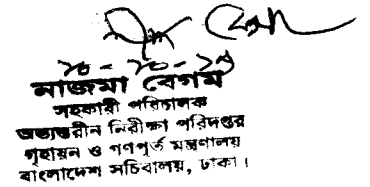 নাজমা বেগম
সহকারী পরিচালক
অভ্যন্তরীন নিরীক্ষা পরিদপ্তর
গৃহায়ন ও গণপূর্ত মন্ত্রণালয়
বাংলাদেশ সচিবালয়, ঢাকা।